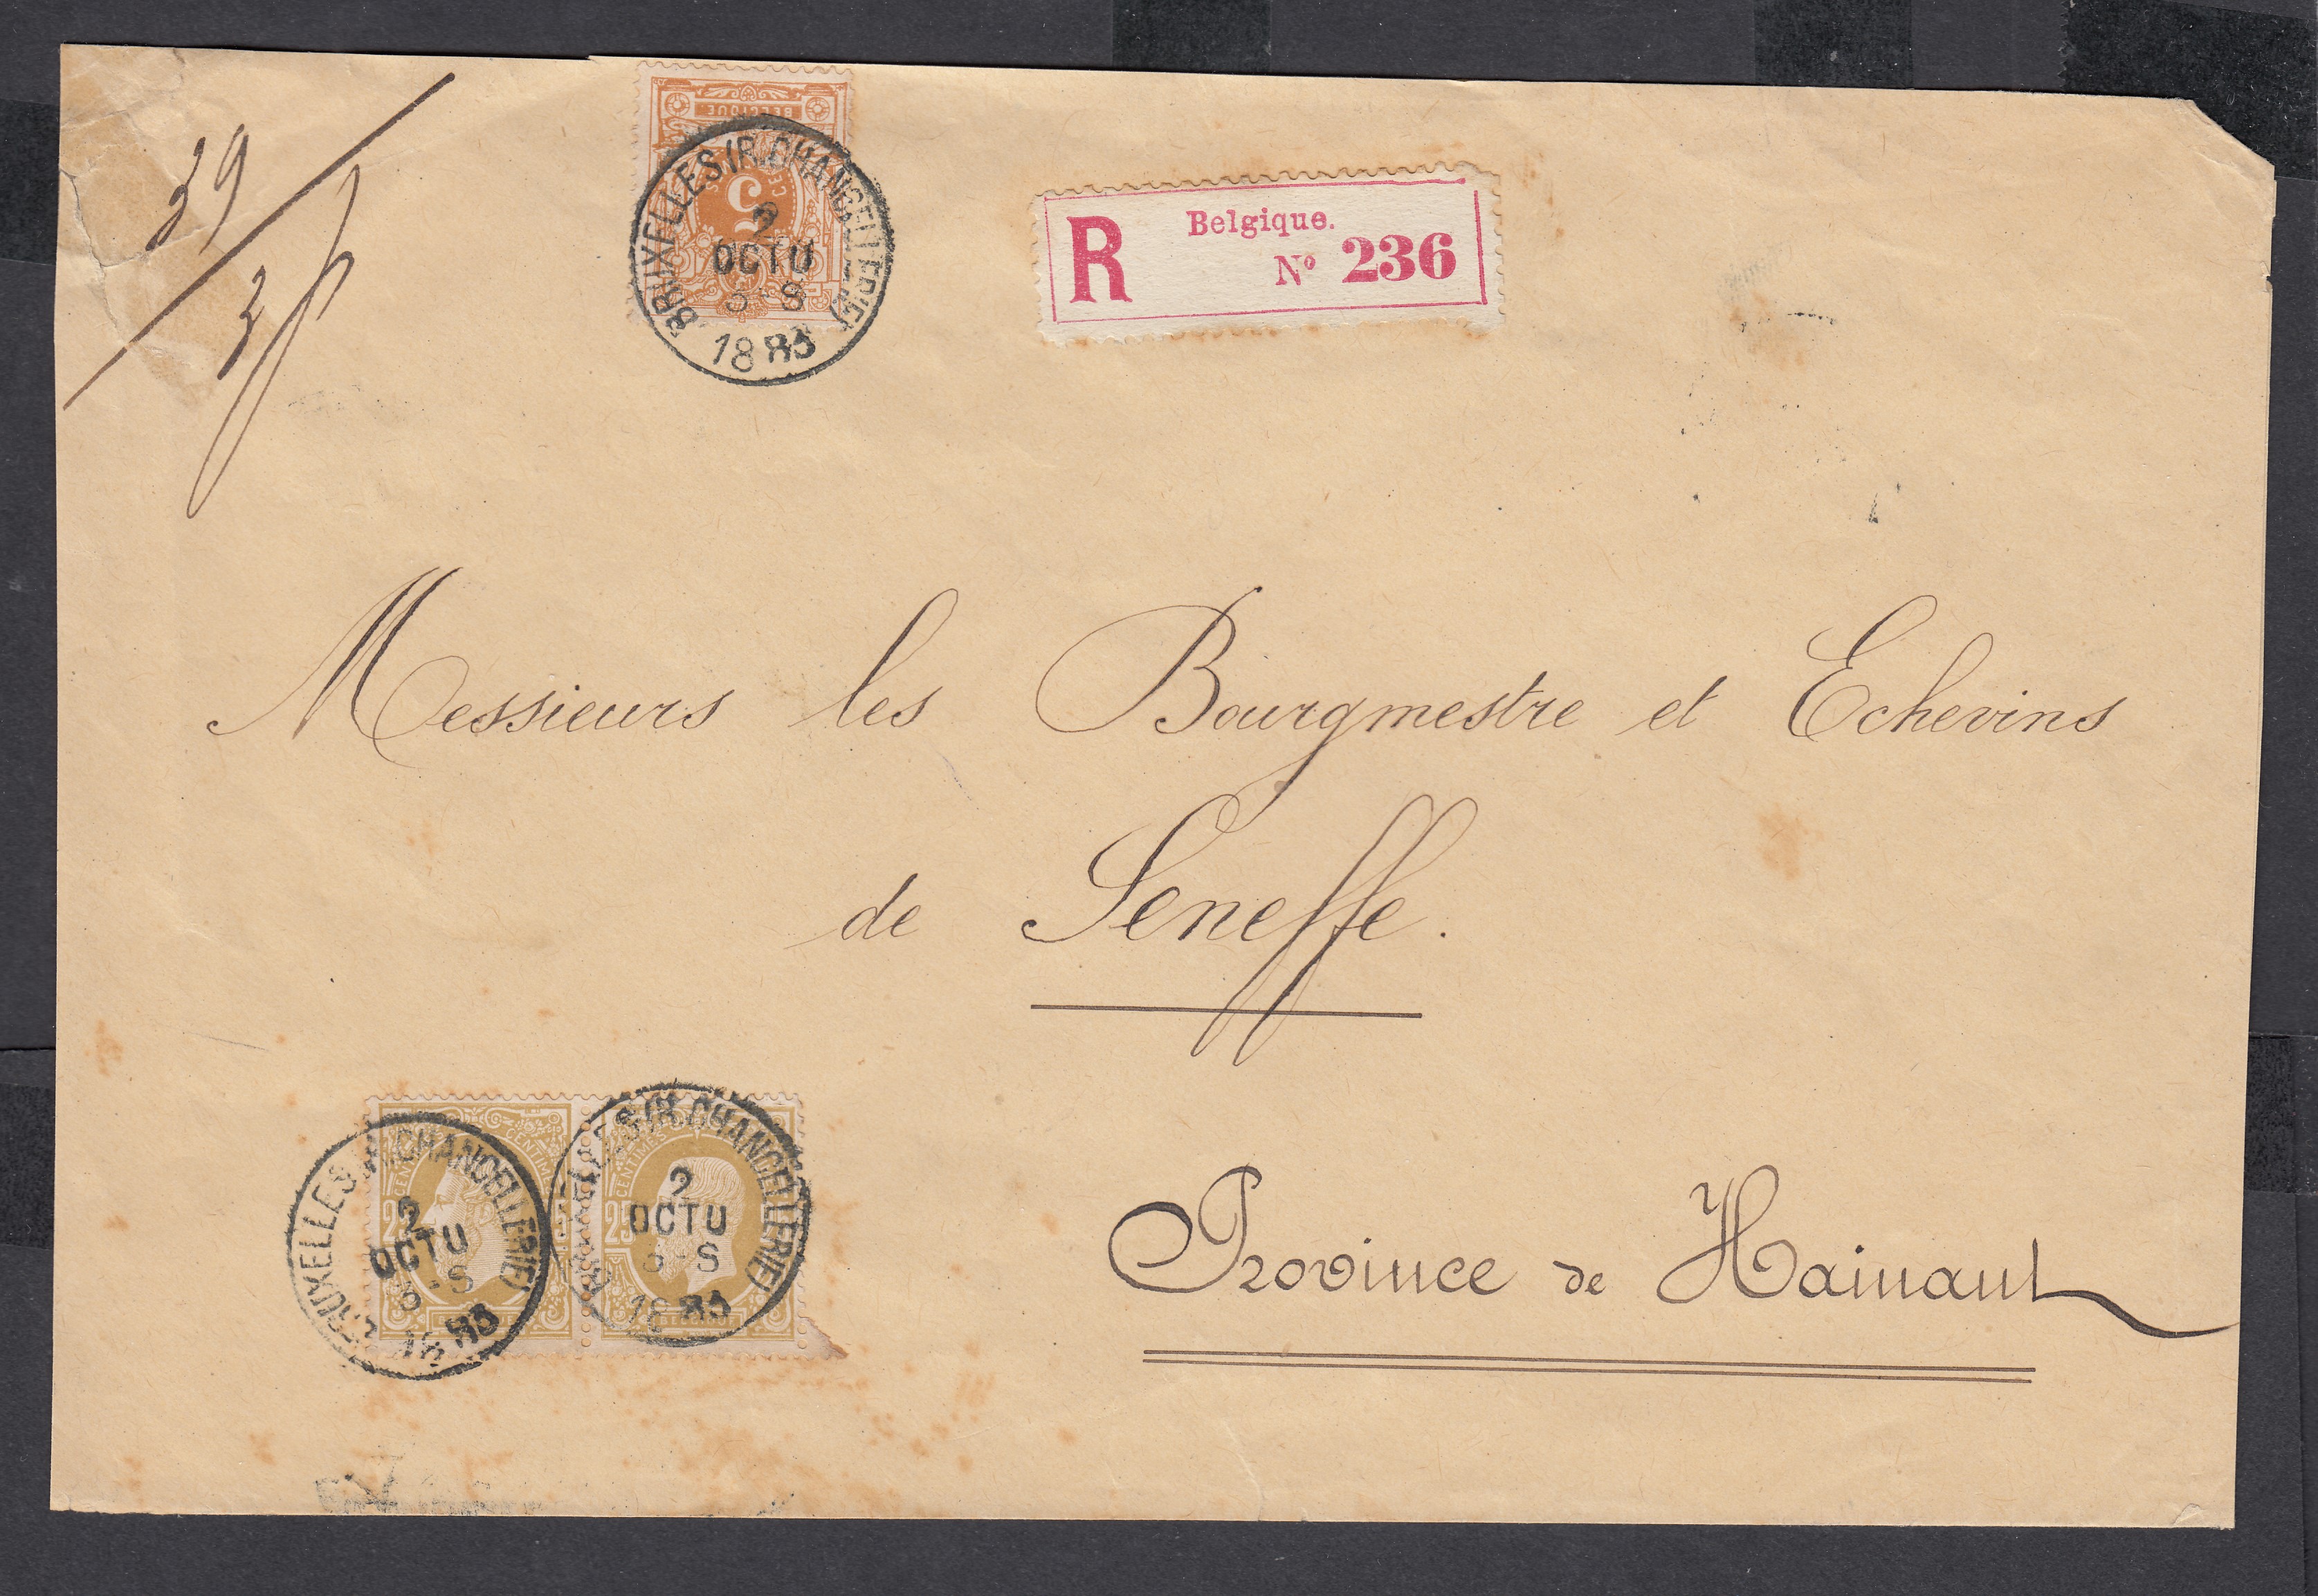 39
3
BELGIQUE
5
BRUXELLES (R. CHANCELLERIE)
2
OCTU
3-S
1883
R Belgique.
Nº 236
Messieurs les Bourgmestre et Echevins
de Seneffe.
Province de Hainaut
CENTIMES
25
BRUXELLES (R. CHANCELLERIE)
2
OCTU
3-S
1883
CENTIMES
25
BRUXELLES (R. CHANCELLERIE)
2
OCTU
3-S
1883